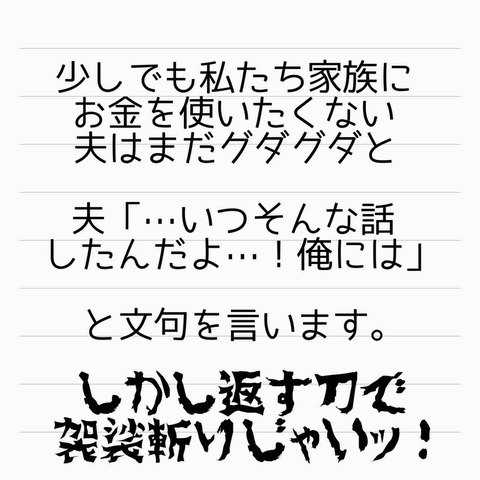 少しでも私たち家族に
お金を使いたくない
夫はまだグダグダと
夫「…いつそんな話
したんだよ…！俺には」
と文句を言います。
しかし返す刀で
袈裟斬りじゃいッ！